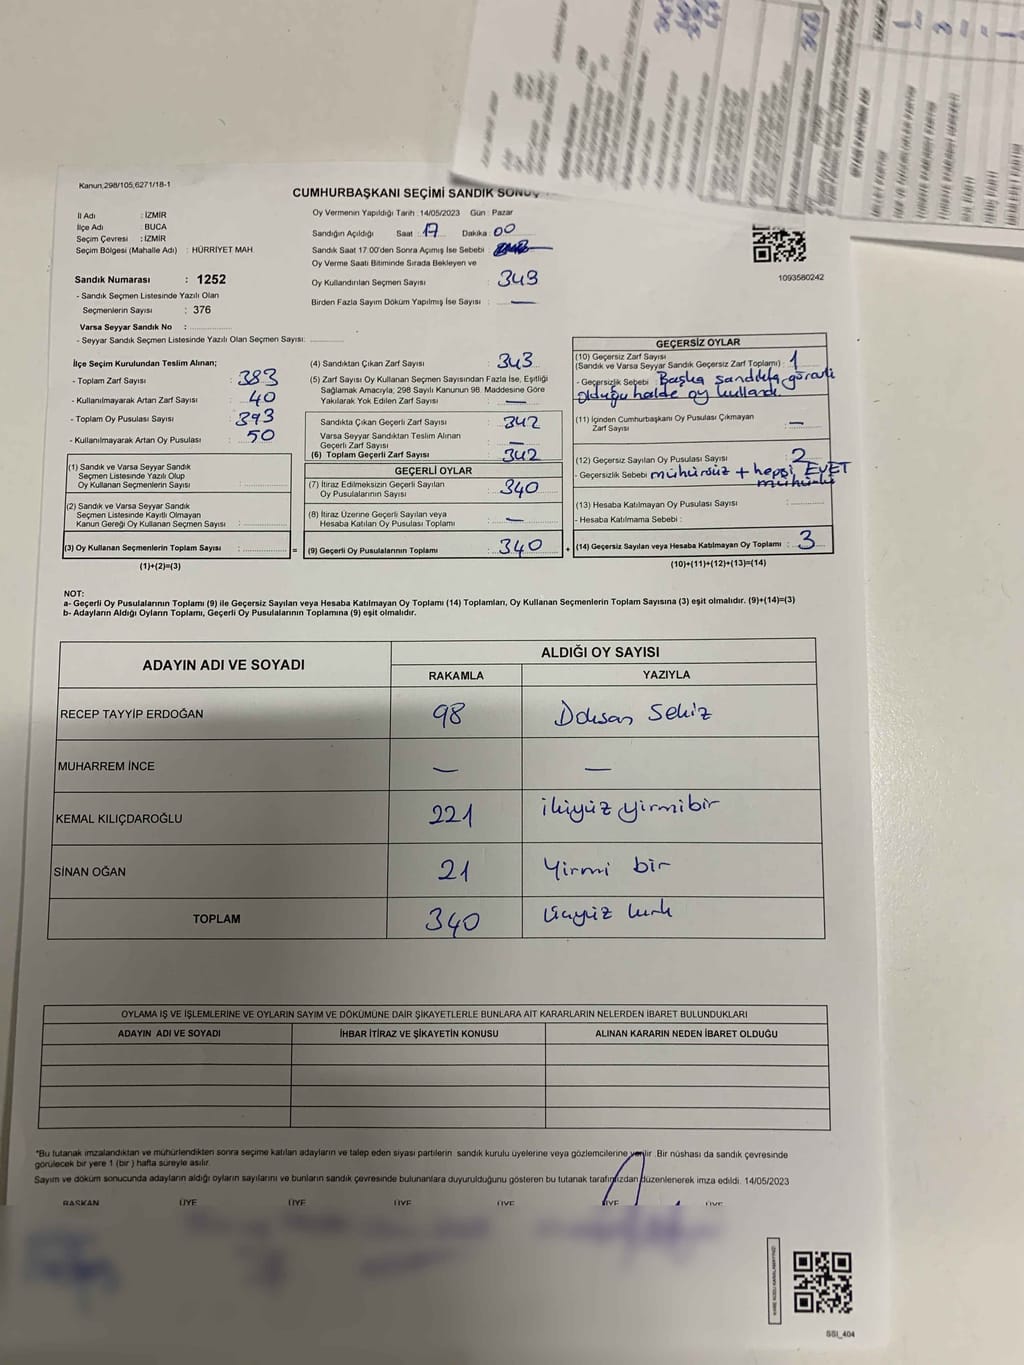 Kanun,298/105,6271/18-1
CUMHURBAŞKANI SEÇİMİ SANDIK
İl Adı : İZMİR
İlçe Adı : BUCA
Seçim Çevresi : İZMİR
Seçim Bölgesi (Mahalle Adı) : HÜRRİYET MAH.
Oy Vermenin Yapıldığı Tarih : 14/05/2023 Gün : Pazar
Sandığın Açıldığı Saat : 17 Dakika : 00
Sandık Saat 17:00'den Sonra Açılmış İse Sebebi :
Oy Verme Saati Bitiminde Sırada Bekleyen ve
Oy Kullandırılan Seçmen Sayısı : 343
Birden Fazla Sayım Döküm Yapılmış İse Sayısı : —
1093580242
Sandık Numarası : 1252
- Sandık Seçmen Listesinde Yazılı Olan
Seçmenlerin Sayısı : 376
Varsa Seyyar Sandık No :
- Seyyar Sandık Seçmen Listesinde Yazılı Olan Seçmen Sayısı:
İlçe Seçim Kurulundan Teslim Alınan;
- Toplam Zarf Sayısı : 383
- Kullanılmayarak Artan Zarf Sayısı : 40
- Toplam Oy Pusulası Sayısı : 393
- Kullanılmayarak Artan Oy Pusulası : 50
(1) Sandık ve Varsa Seyyar Sandık
Seçmen Listesinde Yazılı Olup
Oy Kullanan Seçmenlerin Sayısı :
(2) Sandık ve Varsa Seyyar Sandık
Seçmen Listesinde Kayıtlı Olmayan
Kanun Gereği Oy Kullanan Seçmen Sayısı :
(3) Oy Kullanan Seçmenlerin Toplam Sayısı : =
(1)+(2)=(3)
(4) Sandıktan Çıkan Zarf Sayısı : 343
(5) Zarf Sayısı Oy Kullanan Seçmen Sayısından Fazla İse, Eşitliği
Sağlamak Amacıyla; 298 Sayılı Kanunun 98. Maddesine Göre
Yakılarak Yok Edilen Zarf Sayısı : —
Sandıkta Çıkan Geçerli Zarf Sayısı : 342
Varsa Seyyar Sandıktan Teslim Alınan
Geçerli Zarf Sayısı : —
(6) Toplam Geçerli Zarf Sayısı : 342
GEÇERLİ OYLAR
(7) İtiraz Edilmeksizin Geçerli Sayılan
Oy Pusulalarının Sayısı : 340
(8) İtiraz Üzerine Geçerli Sayılan veya
Hesaba Katılan Oy Pusulası Toplamı : —
(9) Geçerli Oy Pusulalarının Toplamı : 340 +
GEÇERSİZ OYLAR
(10) Geçersiz Zarf Sayısı
(Sandık ve Varsa Seyyar Sandık Geçersiz Zarf Toplamı) : 1
- Geçersizlik Sebebi : Başka sandıkta görevli
olduğu halde oy kullandı.
(11) İçinden Cumhurbaşkanı Oy Pusulası Çıkmayan
Zarf Sayısı : —
(12) Geçersiz Sayılan Oy Pusulası Sayısı : 2
- Geçersizlik Sebebi : mühürsüz + hepsi EVET
mühürlü
(13) Hesaba Katılmayan Oy Pusulası Sayısı :
- Hesaba Katılmama Sebebi :
(14) Geçersiz Sayılan veya Hesaba Katılmayan Oy Toplamı : 3
(10)+(11)+(12)+(13)=(14)
NOT:
a- Geçerli Oy Pusulalarının Toplamı (9) ile Geçersiz Sayılan veya Hesaba Katılmayan Oy Toplamı (14) Toplamları, Oy Kullanan Seçmenlerin Toplam Sayısına (3) eşit olmalıdır. (9)+(14)=(3)
b- Adayların Aldığı Oyların Toplamı, Geçerli Oy Pusulalarının Toplamına (9) eşit olmalıdır.
ADAYIN ADI VE SOYADI
ALDIĞI OY SAYISI
RAKAMLA YAZIYLA
RECEP TAYYİP ERDOĞAN 98 Doksan Sekiz
MUHARREM İNCE — —
KEMAL KILIÇDAROĞLU 221 ikiyüz yirmibir
SİNAN OĞAN 21 Yirmi bir
TOPLAM 340 Üçyüz kırk
OYLAMA İŞ VE İŞLEMLERİNE VE OYLARIN SAYIM VE DÖKÜMÜNE DAİR ŞİKAYETLERLE BUNLARA AİT KARARLARIN NELERDEN İBARET BULUNDUKLARI
ADAYIN ADI VE SOYADI İHBAR İTİRAZ VE ŞİKAYETİN KONUSU ALINAN KARARIN NEDEN İBARET OLDUĞU
*Bu tutanak imzalandıktan ve mühürlendikten sonra seçime katılan adayların ve talep eden siyasi partilerin sandık kurulu üyelerine veya gözlemcilerine verilir. Bir nüshası da sandık çevresinde
görülecek bir yere 1 (bir ) hafta süreyle asılır.
Sayım ve döküm sonucunda adayların aldığı oyların sayılarını ve bunların sandık çevresinde bulunanlara duyurulduğunu gösteren bu tutanak tarafımızdan düzenlenerek imza edildi. 14/05/2023
BAŞKAN ÜYE ÜYE ÜYE ÜYE ÜYE ÜYE
SSI_404